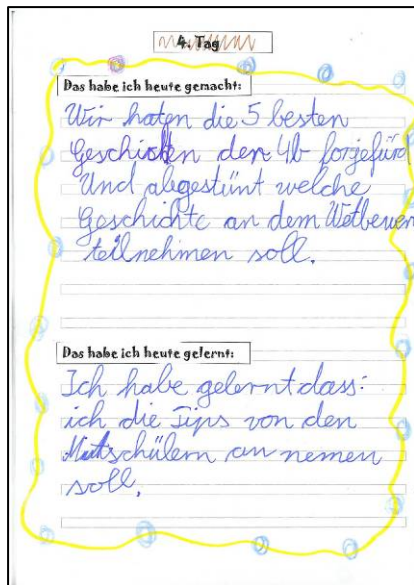 4. Tag
Das habe ich heute gemacht:
Wir haten die 5 besten
Geschichten der 4b forjefürd
Und abgestünt welche
Geschichte an dem Wetbewer
teilnehmen soll.
Das habe ich heute gelernt:
Ich habe gelernt dass:
ich die Tips von den
Mitschülern an nemen
soll.